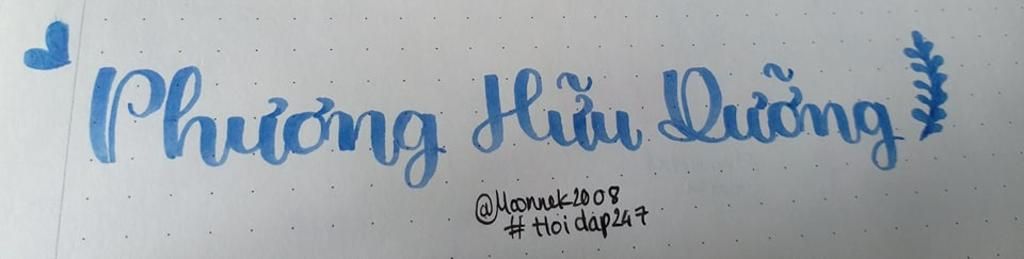 Phương Hữu Dưỡng
@Moonnek2008
#Hoidap247